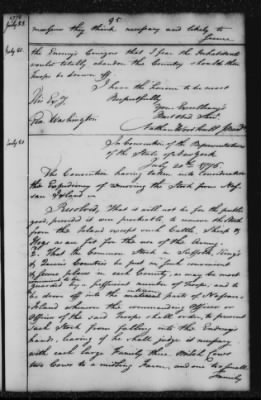 1776
July 23
95
measure they think necessary and likely to
secure
July 21.
the Enemy's Designs that I fear the Inhabitants
would totally abandon the Country should the
Troops be drawn off
I have the honour to be most
Respectfully
Your Excellency's
Most Obed. Serv.
Nathan Woodhull
His Ex'y
Gen. Washington
July 21
In Convention of the Representatives
of the State of New York
July 20th 1776.
The Convention having taken into Consideration
the Expediency of removing the Stock from Nas-
sau Island
Resolved, That it will not be for the public
good, provided it was practicable to remove the Stock
from the Island except such Cattle, Sheep &
Hogs as are fit for the use of the Army.
2. That the Common Stock in Suffolk, King's
& Queens Counties be put in such convenient
place in each County, as may be most
guarded by a sufficient number of Troops, and to
interior
be drove off into the parts of Nassau
Island whenever the commanding Officer or
Officers of the said Troops shall order, to prevent
such Stock from falling into the Enemy's
hands, leaving as he shall judge necessary
with each large Family three Milch Cows
two Cows to a midling Farm, and one to a small
Family